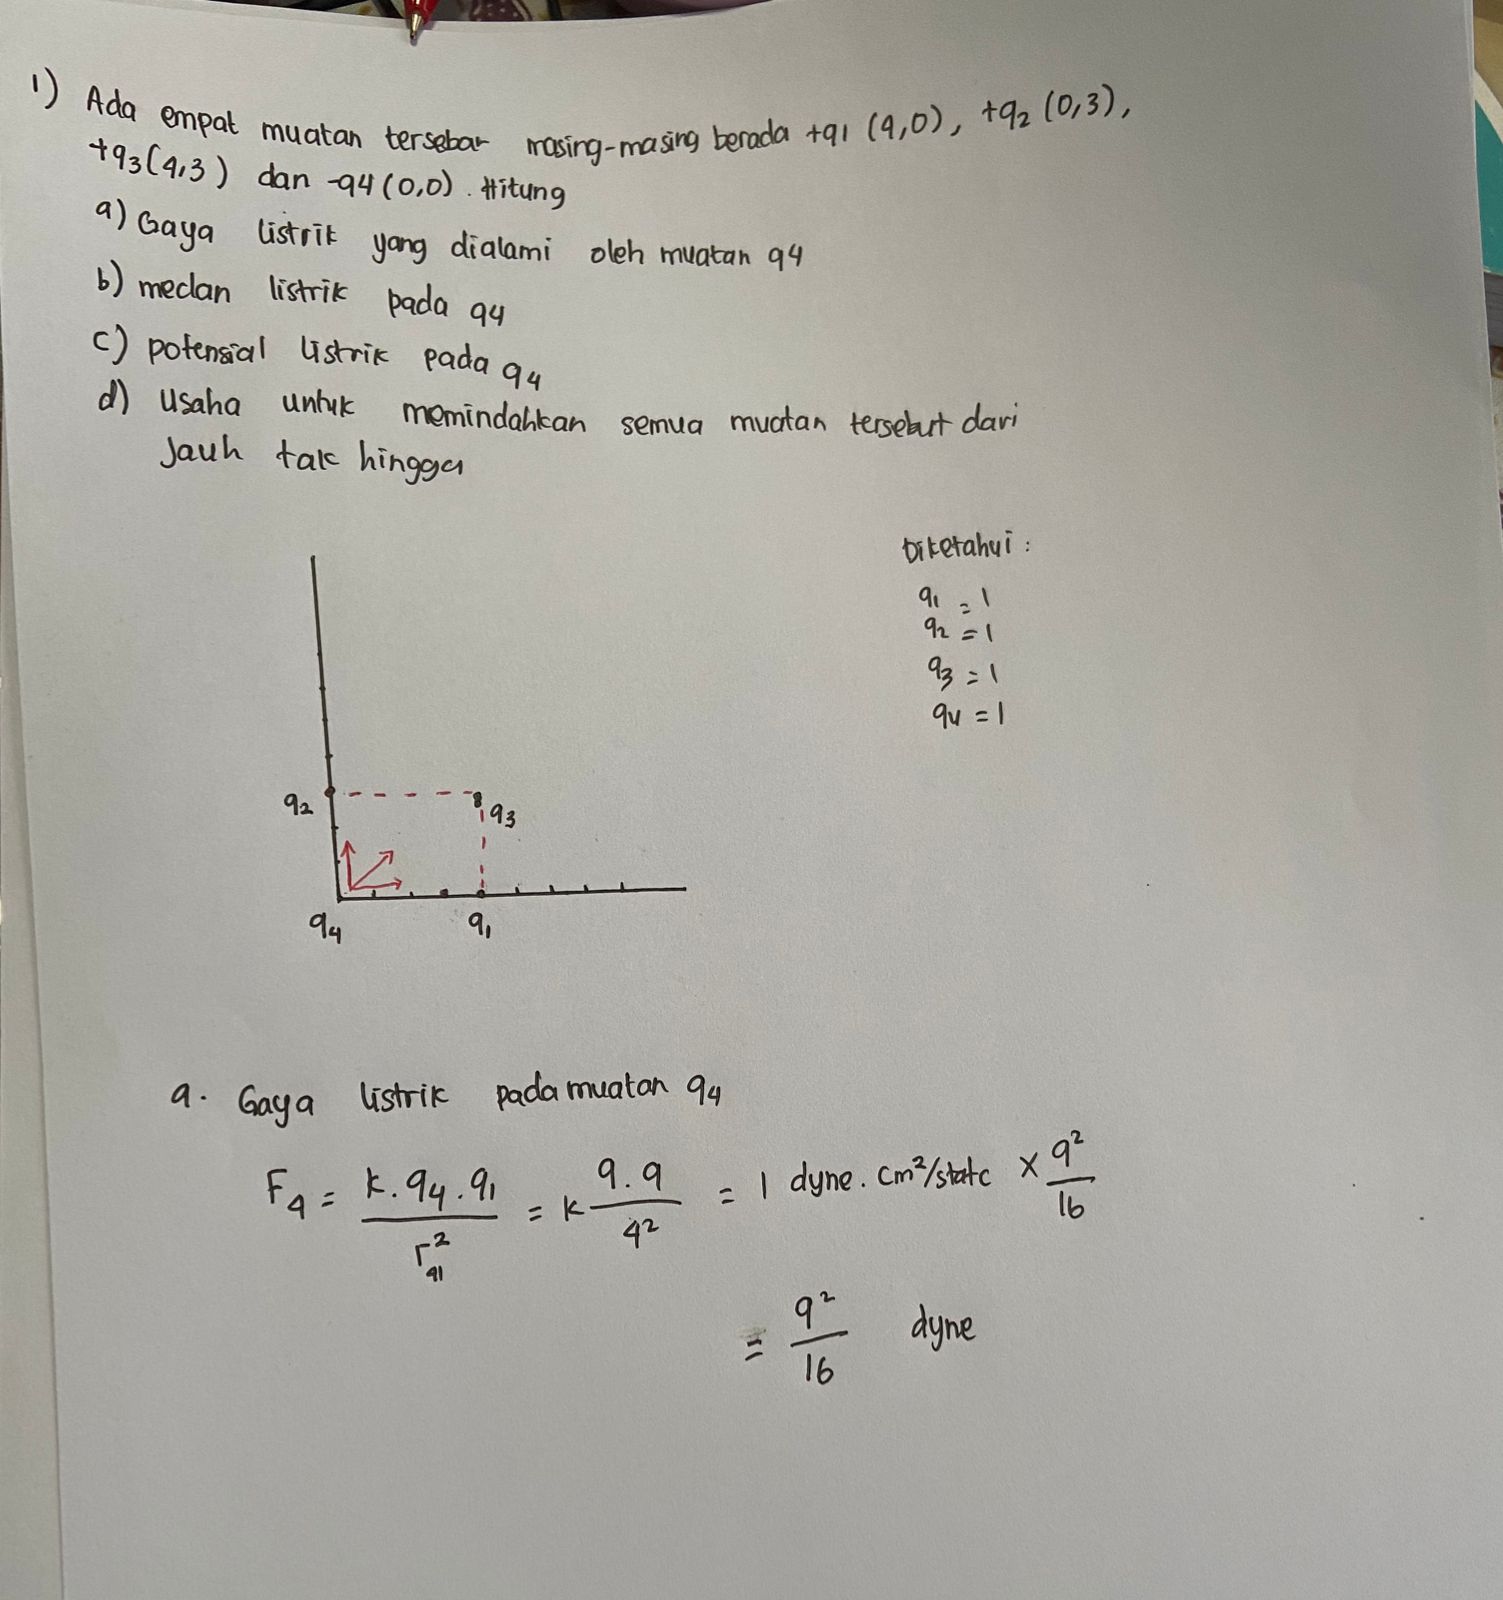 1) Ada empat muatan tersebar masing-masing berada +q1 (4,0), +q2 (0,3),
+q3(4,3) dan -q4 (0,0). Hitung
a) Gaya listrik yang dialami oleh muatan q4
b) medan listrik pada q4
c) potensial listrik pada q4
d) Usaha untuk memindahkan semua muatan tersebut dari
Jauh tak hingga
Diketahui :
q1 = 1
q2 = 1
q3 = 1
q4 = 1
q2
q3
q4
q1
a. Gaya listrik pada muatan q4
F4 = k. q4 . q1 / r²41 = k q . q / 4² = 1 dyne . cm²/statc × q² / 16
= q² / 16 dyne